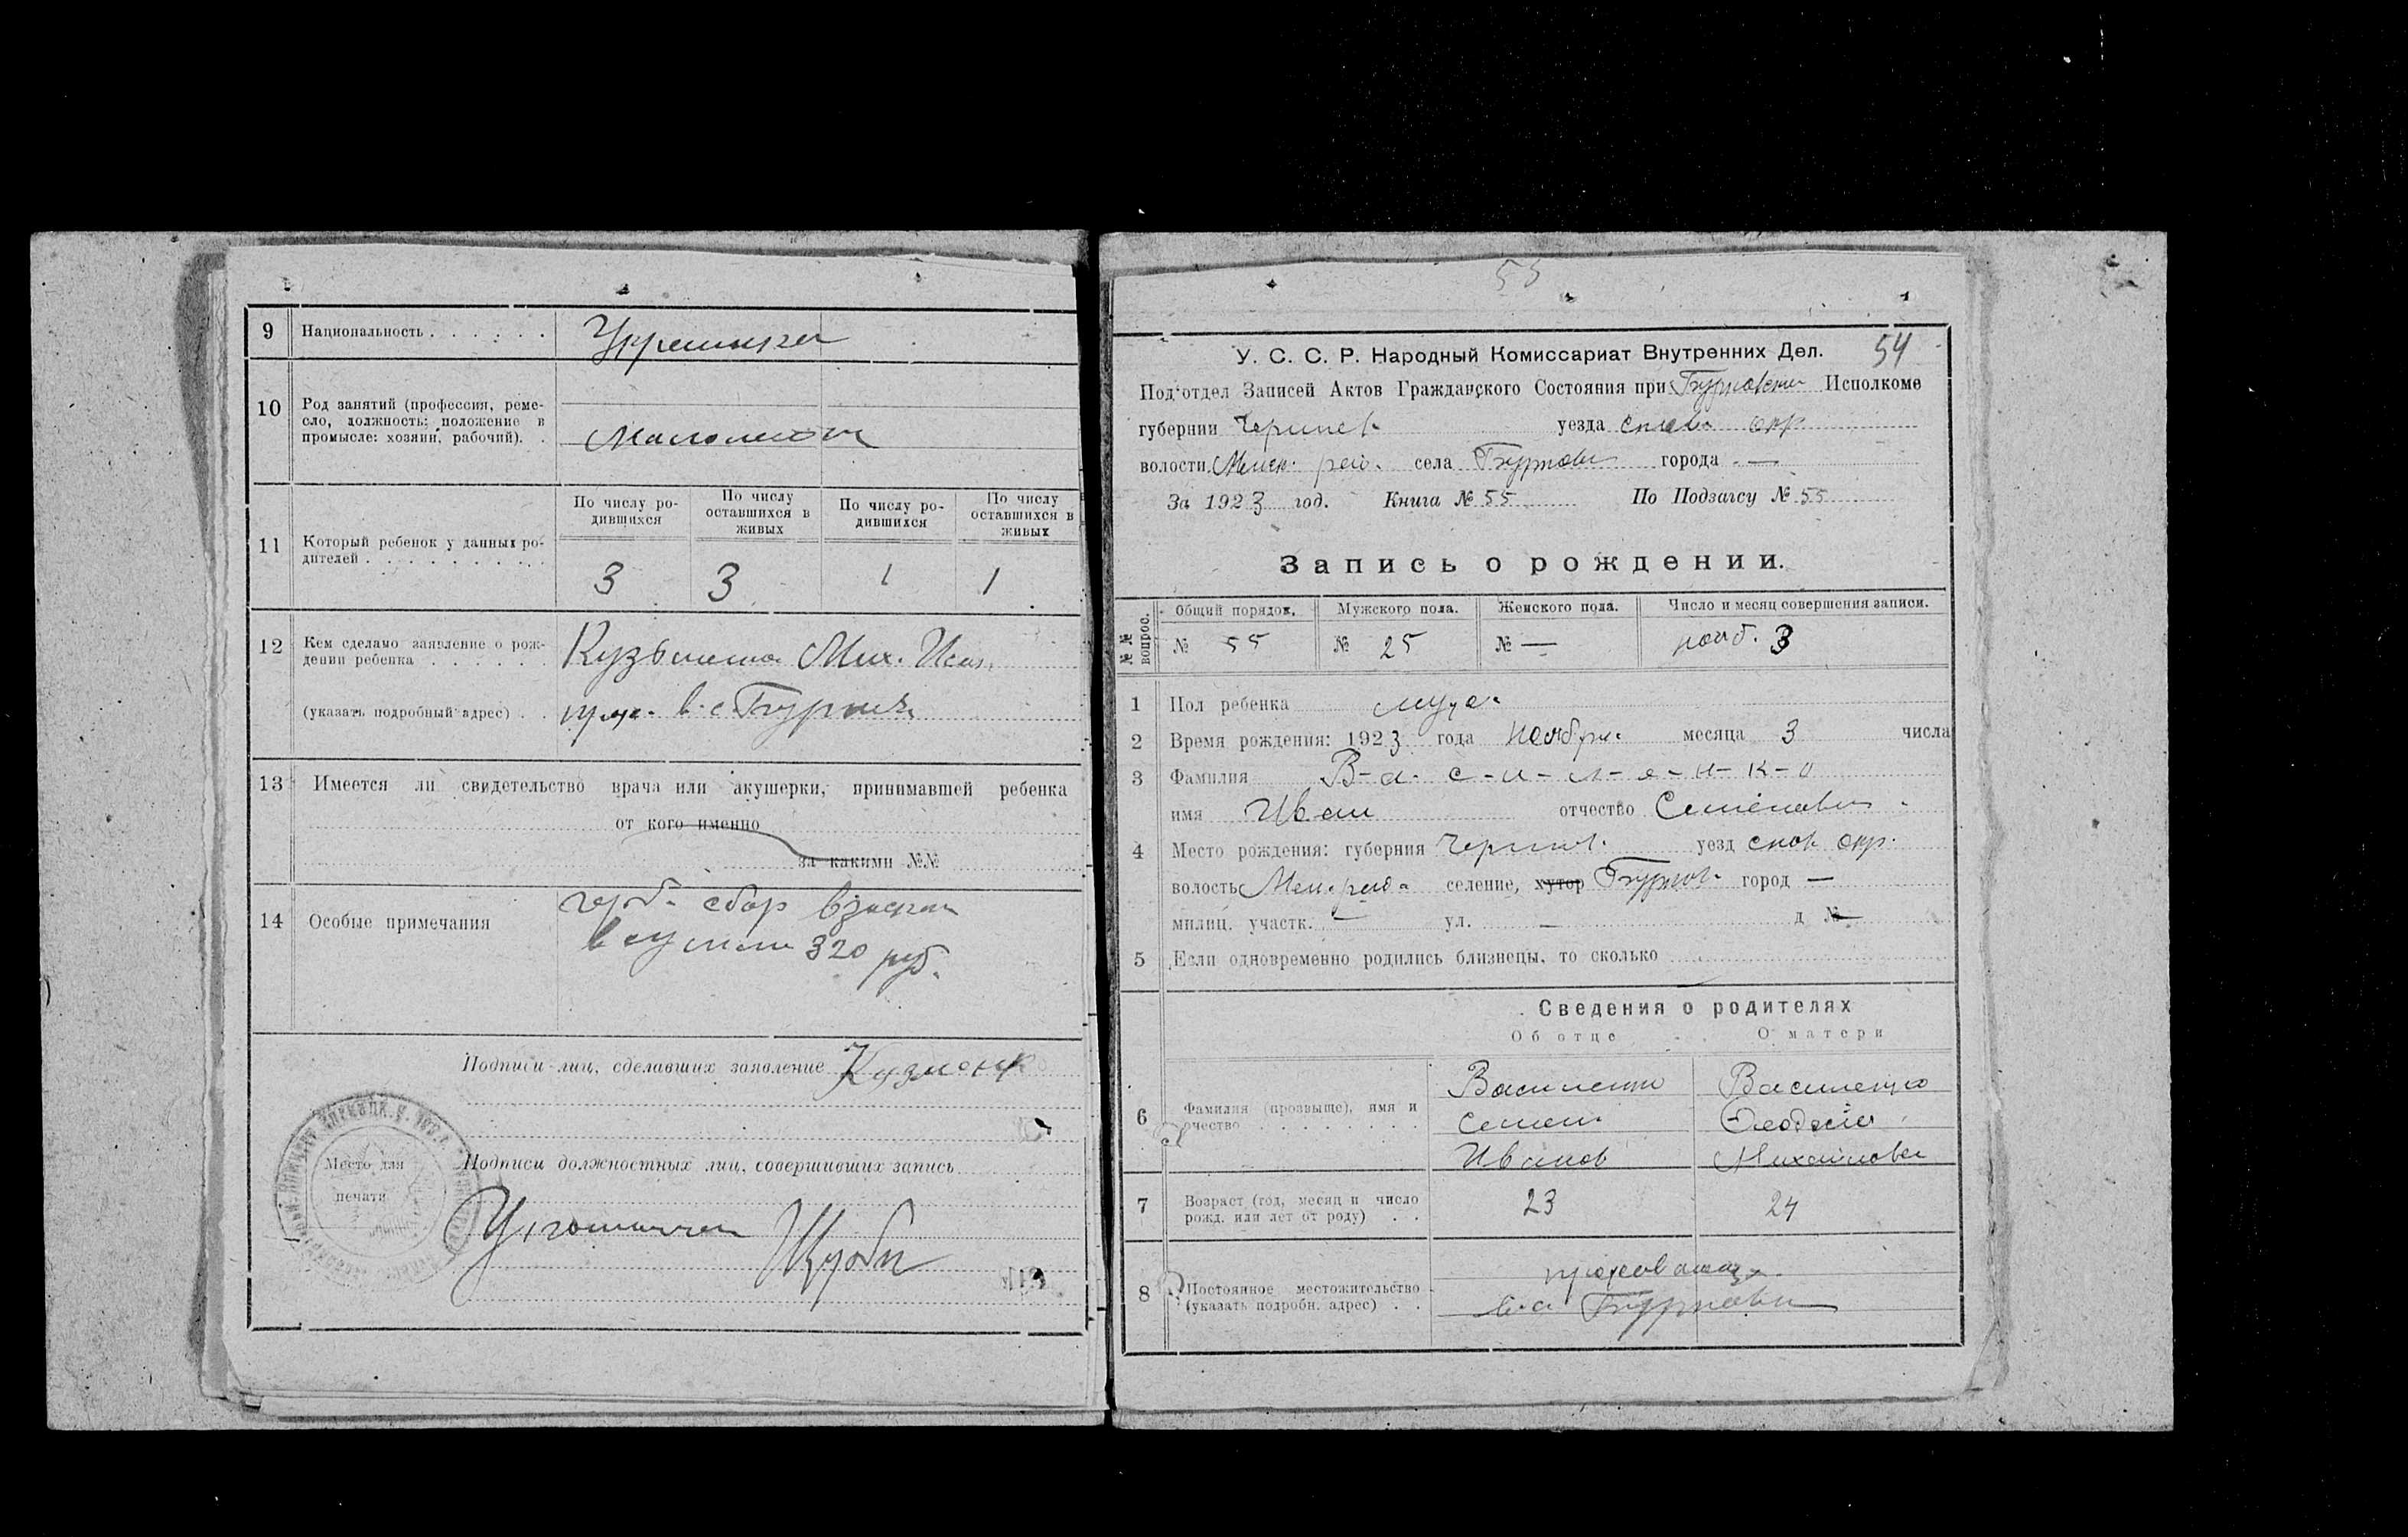 9 Национальность
10 Род занятий (профессия, реме-
сло, должность; положение в
промысле: хозяин, рабочий).
11 Который ребенок у данных ро-
дителей
По числу ро-
дившихся
По числу
оставшихся в
живых
По числу ро-
дившихся
По число
оставшихся в
живых
3 3 1 1
12 Кем сделано заявление о рож-
дении ребенка Кузьменко Мих.
(указать подробный адрес)
13 Имеется ли свидетельство врача или акушерки, принимавшей ребенка
от кого именно
за какими №№
14 Особые примечания
герб. сбор взыскан
в сумме 320 руб.
Подписи лиц, сделавших заявление
Место для
печати
Подписи должностных лиц, совершивших запись
55
54
У. С. С. Р. Народный Комиссариат Внутренних Дел.
Под'отдел Записей Актов Гражданского Состояния при Исполкоме
губернии Чернигов уезда Снов. окр
волости Менск. рай. села города —
За 1923 год. Книга № 55 По Подзагсу № 55
Запись о рождении.
№№ вопрос.
Общий порядок. Мужского пола. Женского пола. Число и месяц совершения записи.
№ 55 № 25 № — нояб. 3
1 Пол ребенка муж.
2 Время рождения: 1923 года Ноября месяца 3 числа
3 Фамилия В-а-с-и-л-е-н-к-о
имя Иван отчество Семенович
4 Место рождения: губерния Чернигов. уезд Снов. окр.
волость селение, хутор город —
милиц. участк. — ул. — д №—
5 Если одновременно родились близнецы, то сколько
Сведения о родителях
Об отце О матери
6 Фамилия (прозвыще), имя и
очество
Василенко Василенко
Семен Феодосия
Иванов Михайлова
7 Возраст (год, месяц и число
рожд. или лет от роду)
23 24
8 Постоянное местожительство
(указать подробн. адрес)